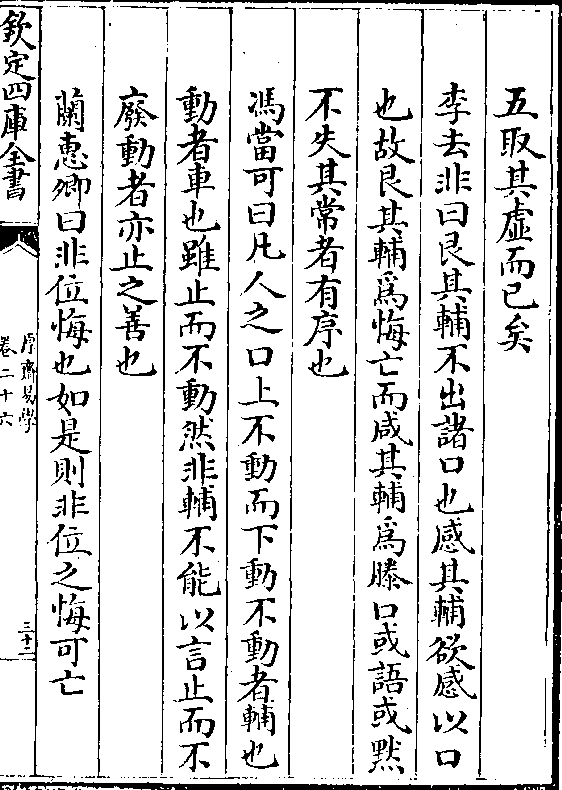 五取其虛而已矣
李去非曰艮其輔不出諸口也感其輔欲感以口
也故艮其輔為悔亡而咸其輔為滕口或語或黙
不失其常者有序也
馮當可曰凡人之口上不動而下動不動者輔也
動者車也雖止而不動然非輔不能以言止而不
廢動者亦止之善也
蘭惠卿曰非位悔也如是則非位之悔可亡
欽定四庫全書
厚齋易學
卷二十六
三十二